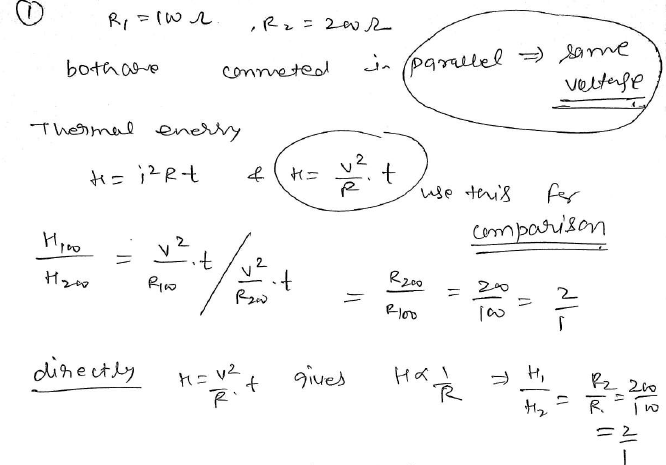 ① R₁ = 100 Ω , R₂ = 200 Ω
both are connected in parallel ⇒ same voltage
Thermal energy
H = i²Rt & H = V²/R . t use this for comparison
H₁₀₀/H₂₀₀ = V²/R₁₀₀ . t / V²/R₂₀₀ . t = R₂₀₀/R₁₀₀ = 200/100 = 2/1
directly H = V²/R . t gives H ∝ 1/R ⇒ H₁/H₂ = R₂/R₁ = 200/100
= 2/1